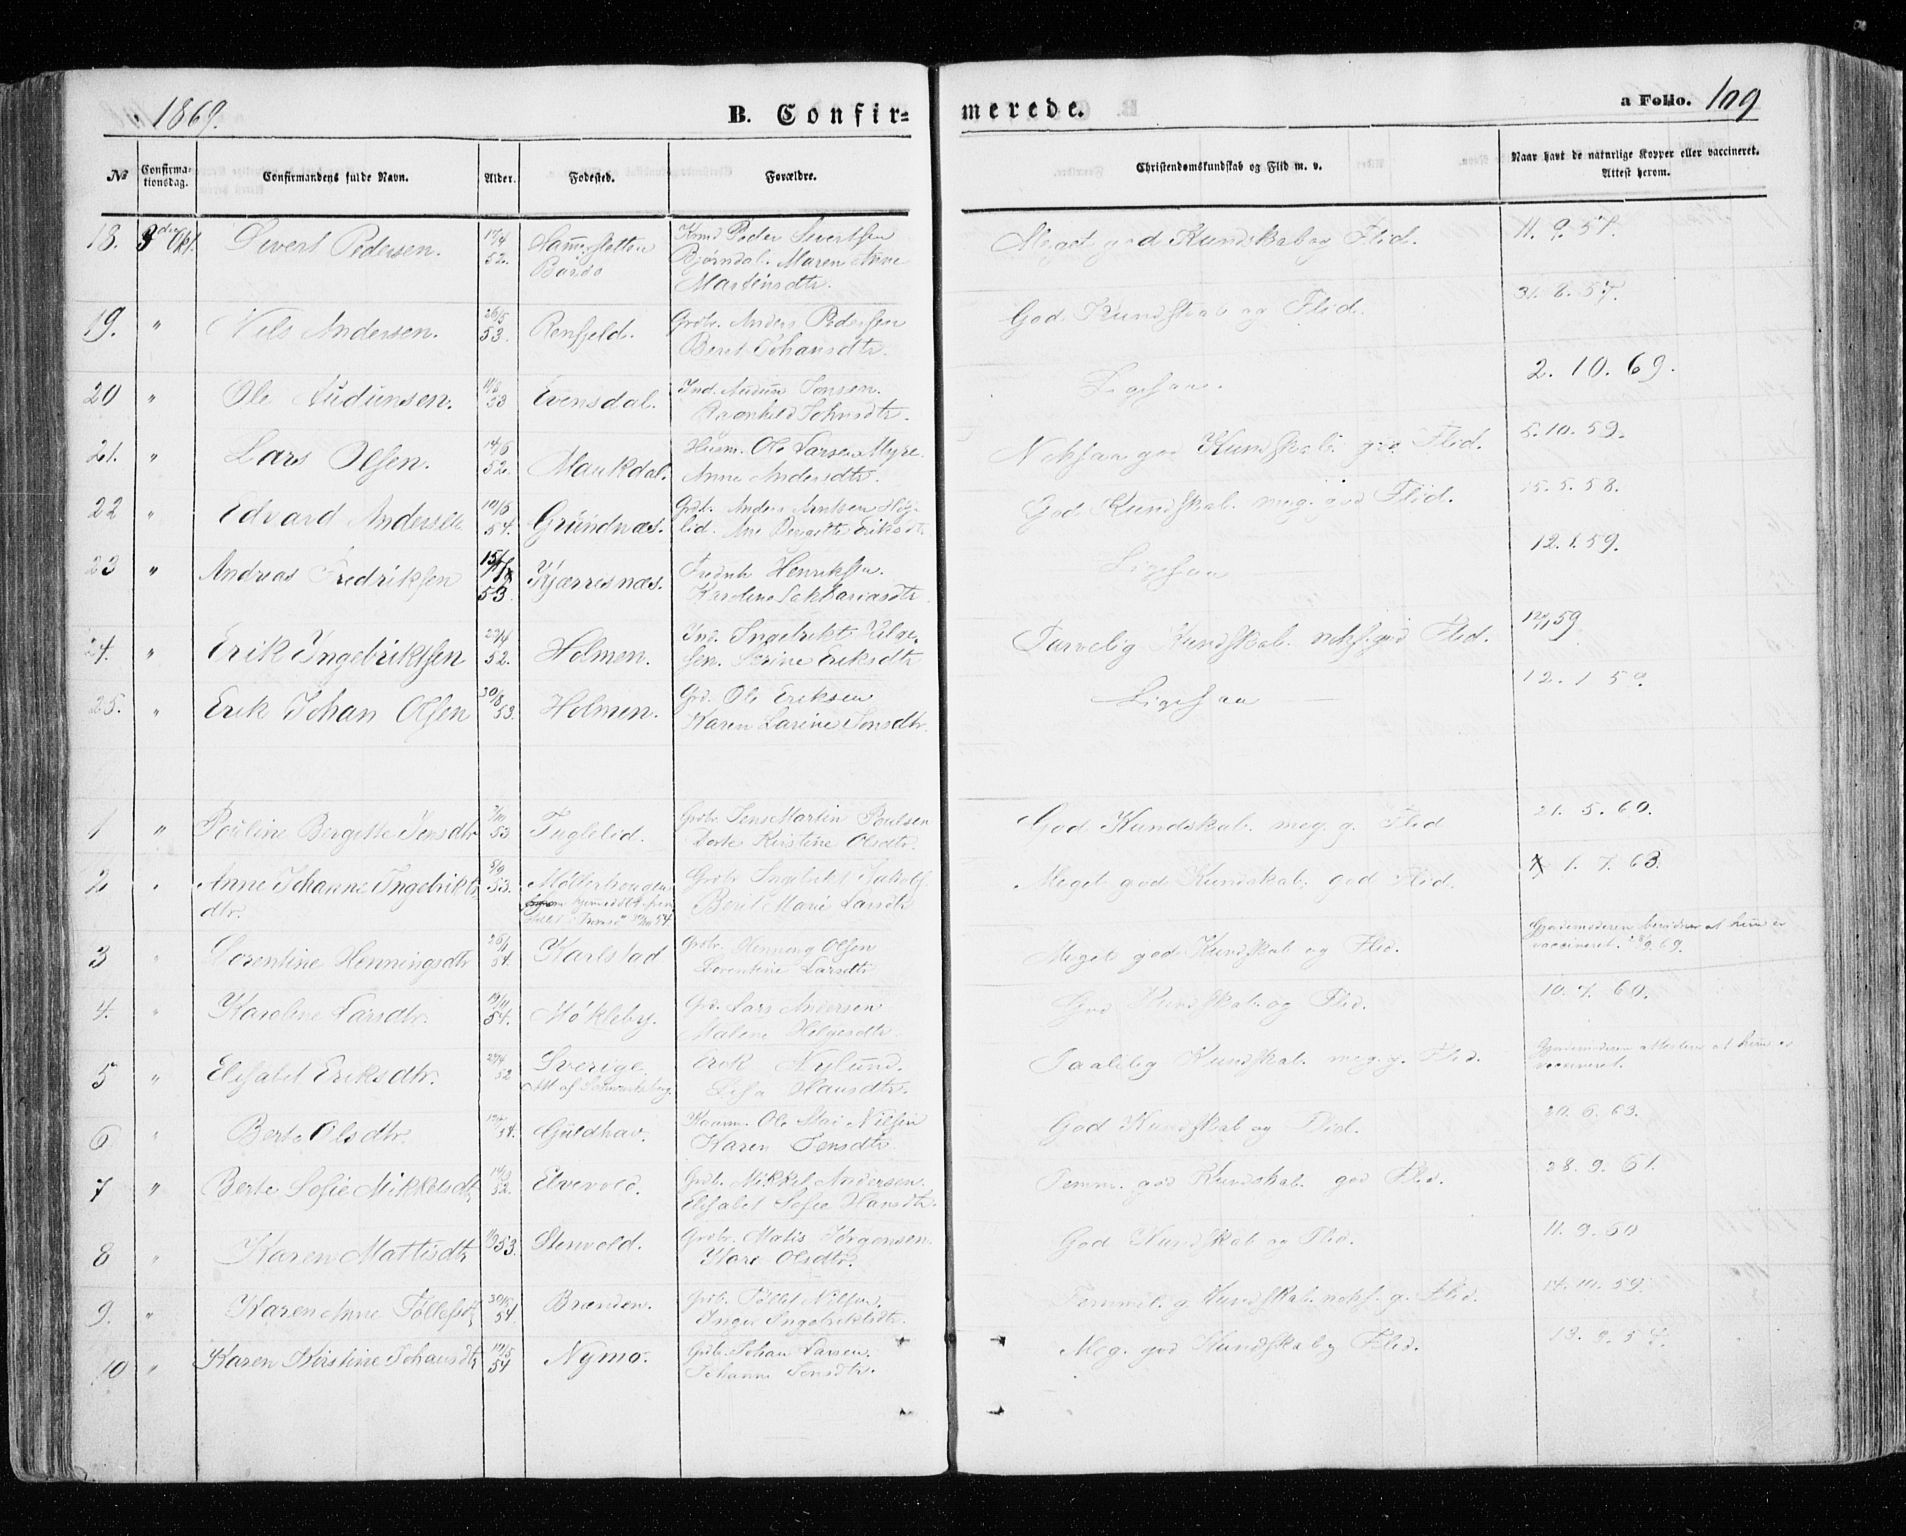 1869.
B. Confir=
merede.
a Folio. 109
No
Confirma-
tionsdag.
Confirmandens fulde Navn.
Alder.
Fodested.
Forældre.
Christendomskundskab og Flid m. v.
Naar havt de naturlige Kopper eller vaccineret.
Attest herom.
18. 3die Okt. Sivert Pedersen. 52. Bardo
Peder Sivertsen
Bjørndal. Maren Anne
Martinsdtr.
Meget god Kundskab og Flid. 11. 9. 57.
19. " Nils Andersen. 26/5 53. Renfjeld.
Grdb. Anders Pedersen
Beret Johansdtr.
God Kundskab og Flid. 31. 8. 57.
20 " Ole Audunsen. 53 Evensdal.
Ind. Audun Jonsen.
Ragnhild
Ligesaa. 2. 10. 69.
21. " Lars Olsen. 14/6 52. Maukdal.
Husm. Ole Larsen Myre.
Anne Andersdtr.
Nokksaa god Kundskab. god Flid. 5. 10. 59.
22 " Edvard Andersen 54. Grundnæs.
Grdb. Anders Arntsen Høg-
lid. Ane Bergitte Eriksdtr.
God Kundskab. meg. god Flid. 15. 5. 58.
23 " Andreas Fredriksen 53. Kjærresnæs.
Fredrik Henriksen.
Karoline Sakkariasdtr.
Ligesaa 12. 1. 59.
24. " Erik Ingebriktsen 52. Holmen.
Ind. Ingebrikt Helge-
sen. Serine Eriksdtr
Tarvelig Kundskab. noks. god Flid. 12/1 59
25. " Erik Johan Olsen 30/8 53. Holmen.
Grd. Ole Eriksen
Karen Larine Jonsdtr.
Ligesaa 12. 1 59.
1 " Pauline Bergitte Jensdtr 53 Fuglelid.
Grdbr. Jens Martin Paulsen
Dorte Kirstine Olsdtr.
God Kundskab. meg. g. Flid 21. 5. 60.
2 " Anne Johanne Ingebrikts
dtr. 8/9 53. Møllerhaugen
hjemmedøbt
i Tromsø 54
Grdbr Ingebrikt Jakobs.
Berit Marie Larsdtr
Meget god Kundskab. god Flid. 1. 7. 63.
3 " Lorentine Henningsdtr 54. Karlstad
Grdbr. Henning Olsen
Lorentine Larsdtr
Meget god Kundskab og Flid.
Gjordemoderen bevidner at hun er
vaccineret. 69.
4. " Karoline Larsdtr. 19/11 54. Møkleby.
Grd. Lars Andersen
Malene Helgesdtr
God Kundskab. og Flid. 10. 7. 60.
5 " Elisabet Eriksdtr. 52 Sverige.
Att af
Erik Nylund.
Lisa Hansdtr.
Taalelig Kundskab. meg. g. Flid.
Gjordemoderen attesterer at hun er
vaccineret.
6 " Berte Olsdtr. 54. Guldhav.
Ole Nilsen
Karen Jensdtr
God Kundskab og Flid. 20. 6. 63.
7 " Berte Sofie Mikkelsdtr 52. Elvevold.
Grdb. Mikkel Andersen.
Elisabet Sofie Hansdtr.
Temm. god Kundskab. god Flid. 28. 9. 61.
8 " Karen Mattisdtr 53. Stenvold.
Grdbr. Matis Jørgensen.
Mare Olsdtr.
God Kundskab og Flid. 11. 9. 60
9. " Karen Anne Tollefsdtr 54. Brænden.
Grdb. Tollef Nilsen.
Inger Ingebriktsdtr.
Temmel. g. Kundskab. noks. g. Flid. 14. 10. 59.
10 " Karen Kirstine Johansdtr 19/5 54 Nymo.
Grdb. Johan Larsen.
Johanna Jensdtr.
Meg. god Kundskab og Flid. 13. 9. 57.